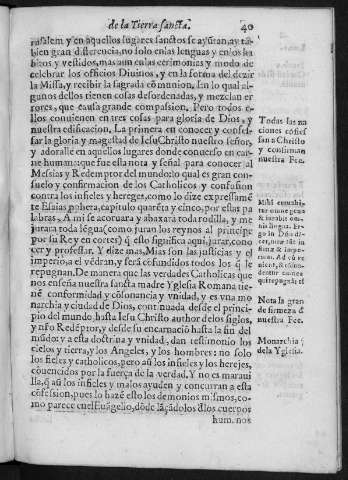 de la Tierra sancta. 40
rusalem y en aquellos lugares sanctos se ayũtan, ay tã
bien gran differencia, no solo en las lenguas y en los ha
bitos y vestidos, mas aun en las cerimonias y modo de
celebrar los officios Diuinos, y en la forma del dezir
la Missa, y recibir la sagrada cõmunion, En lo qual al-
gunos dellos tienen cosas desordenadas, y mezclan er
rores, que causa grande compassion, Pero todos e-
llos conuienen en tres cosas para gloria de Dios, y
nuestra edificacion. La primera en conocer y confes-
sar la gloria y magestad de Iesu Christo nuestro señor,
y adoralle en aquellos lugares donde conuerso en car
ne humana: que fue esta nota y señal para conocer al
Messias y Redemptor del mundo: lo qual es gran con-
suelo y confirmacion de los Catholicos y confusion
contra los infieles y hereges, como lo dize expressamẽ
te Esaias ꝓpheta, capitulo quarẽta y cinco, por estas pa
labras, A mi se acoruara y abaxara toda rodilla, y me
jurara toda lẽgua (como juran los reynos al principe
por su Rey en cortes) q̃ esto significa aqui, jurar, cono
cer y professar. Y dize mas, Mias son las justicias y el
imperio, a el vẽdran, y serã cõfundidos todos los q̃ le
repugnan. De manera que las verdades Catholicas que
nos enseña nuestra sancta madre Yglesia Romana tie-
nẽ conformidad y cõsonancia y vnidad, y es vna mo
narchia y ciudad de Dios, continuada desde el princi-
pio del mundo, hasta Iesu Christo author delos siglos,
y nr̃o Redẽptor, y desde su encarnaciõ hasta la fin del
mũdo: y a esta doctrina y vnidad, dan testimonio los
cielos y tierra, y los Angeles, y los hombres: no solo
los fieles y catholicos, pero aũ los infieles y los herejes,
cõuencidos por la fuerça de la verdad. Y no es maraui
lla, q̃ aũ los infieles y malos ayuden y concurran a esta
cõfession, pues lo hazẽ esto los demonios mismos, co-
mo parece enel Euãgelio, dõde lãçadolos dlos cuerpos
hum. nos
Todas las na
ciones cõfies
san a Christo
y confirman
nuestra Fee.
Mihi curuabi-
tur omne genu
& iurabit om-
nis lingua. Er-
go in Dño di-
cet, meæ sũt iu-
stitiæ & imperi-
um. Ad eũ ve
nient, & cõfun-
dentur omnes
qui repugnãt ei
Nota la gran
de firmeza d̃
nuestra Fee.
Monarchia
dela Yglesia.